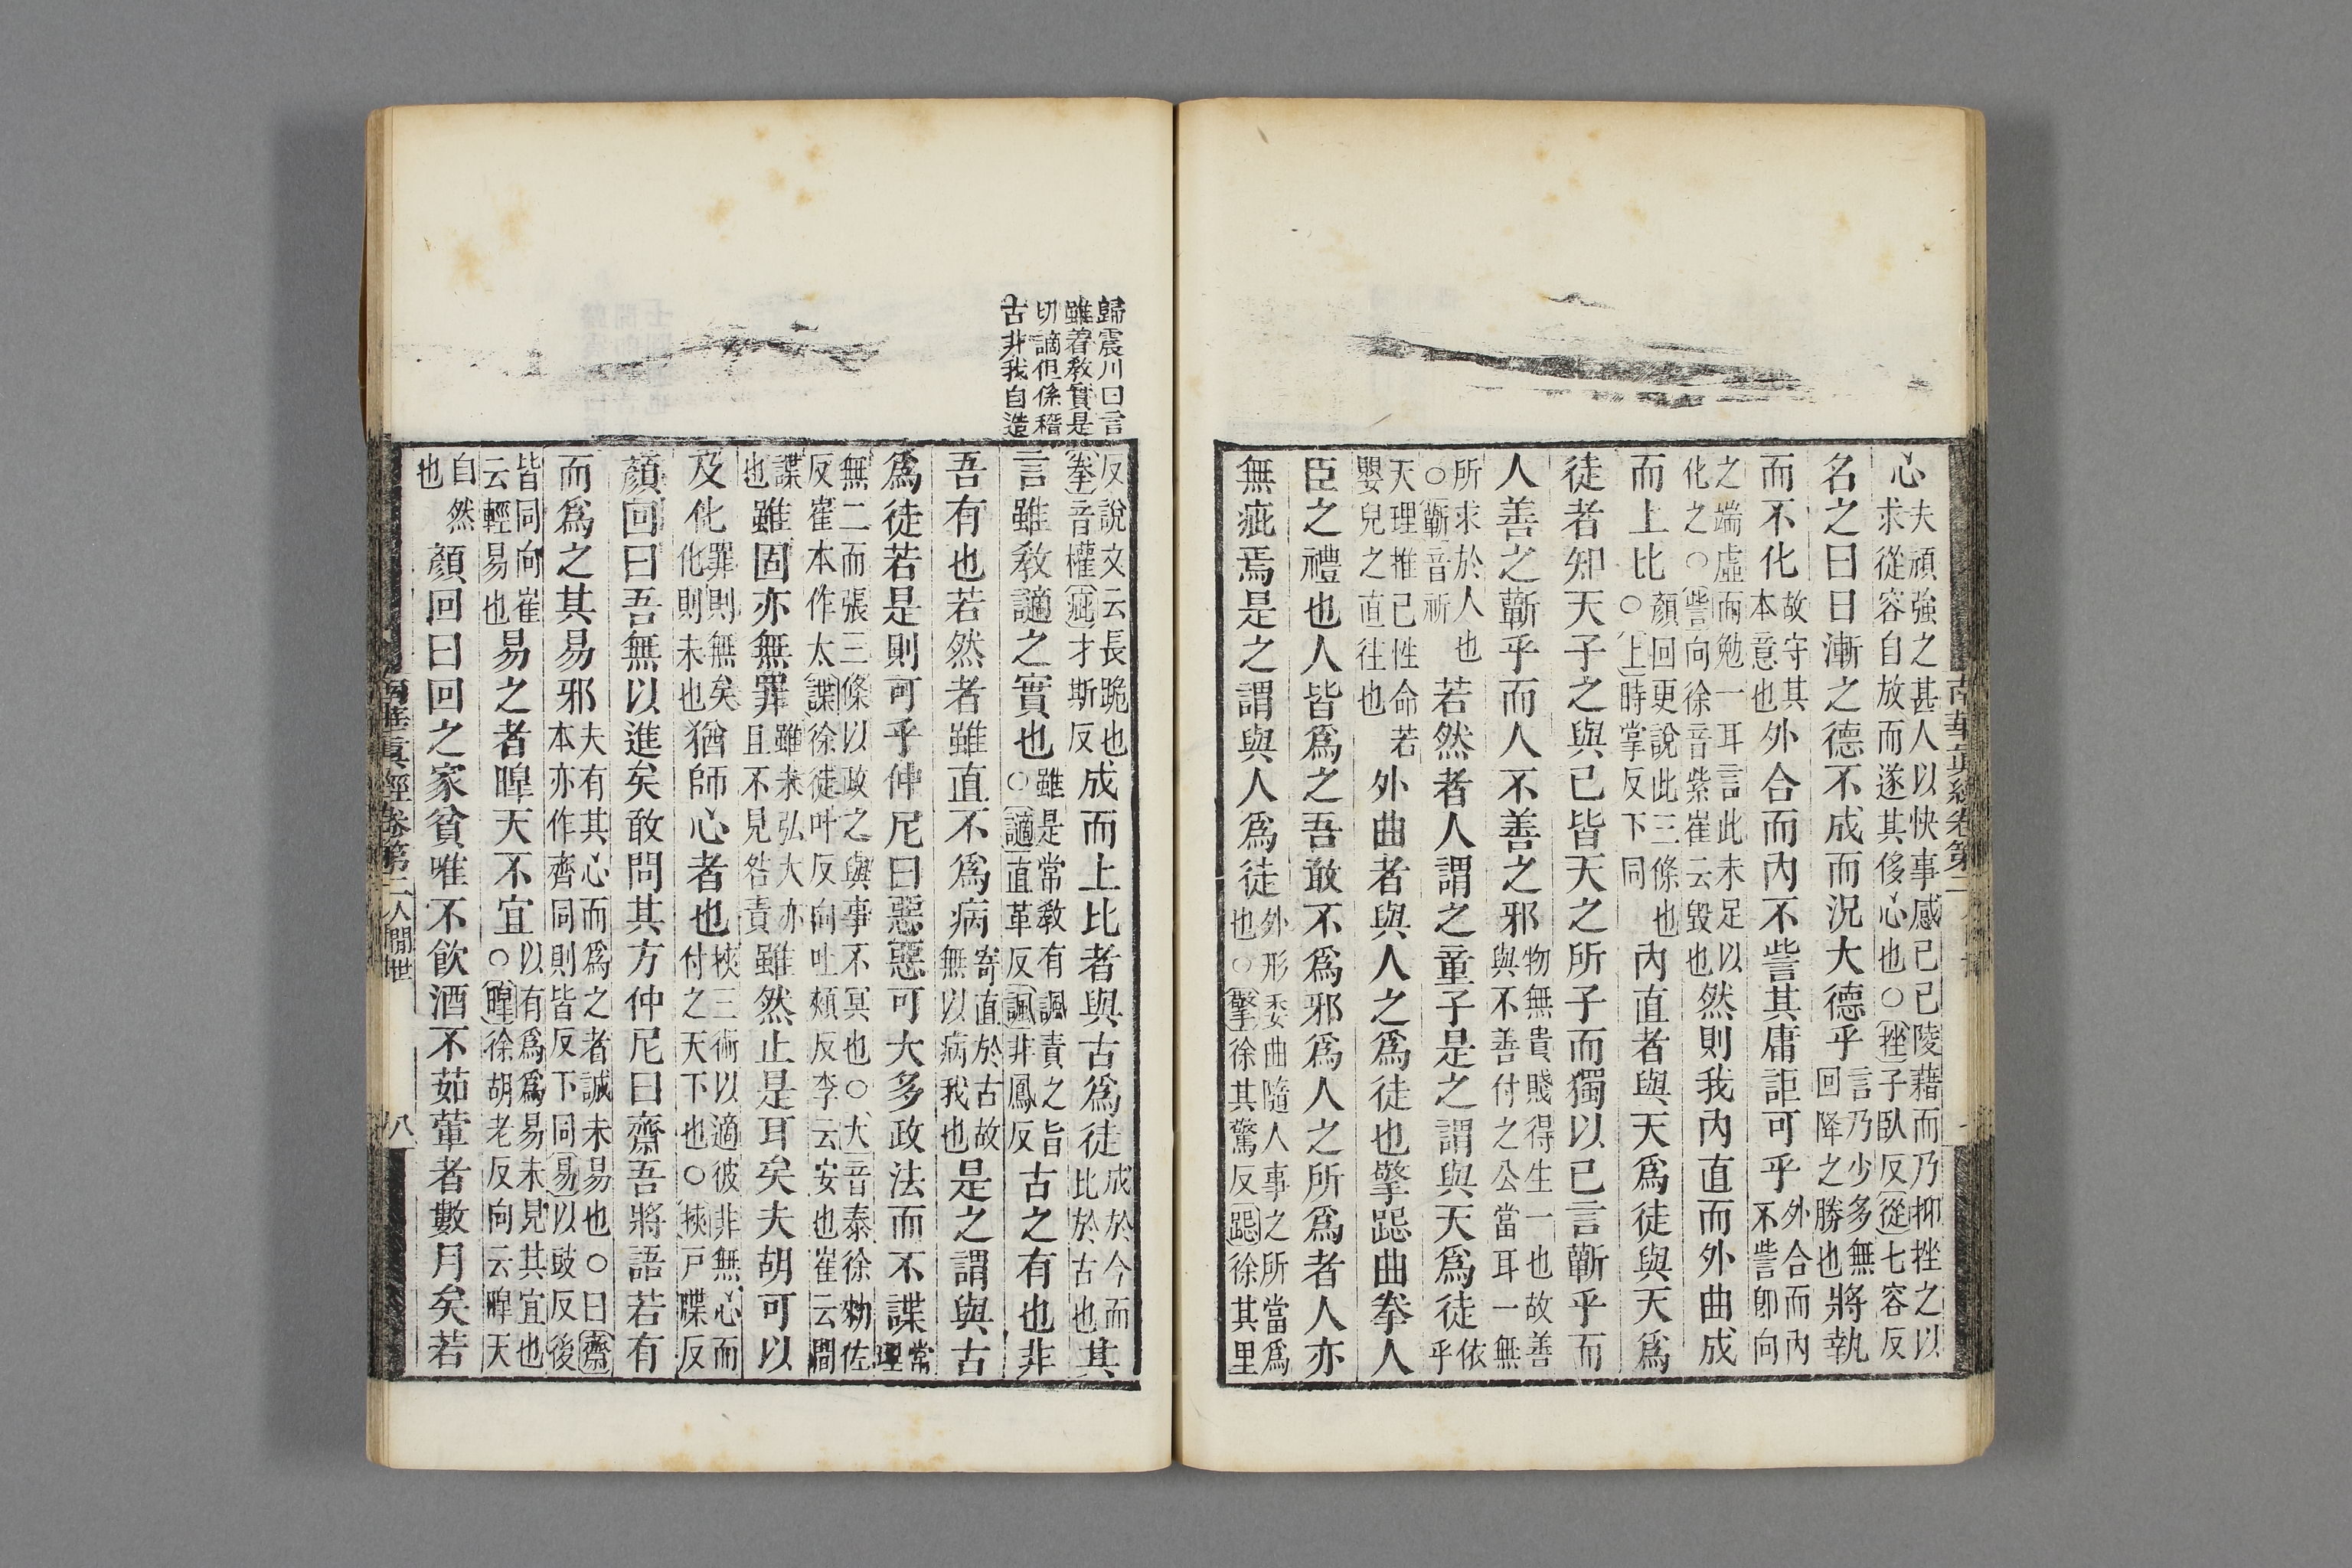 南華眞經卷第二
心夫頑強之甚人以快事感己己陵藉而乃抑挫之以求從容自放而遂其侈心也○挫子臥反從七容反
名之曰日漸之德不成而況大德乎言乃少多無回降之勝也將執
而不化故守其本意也外合而內不訾其庸詎可乎外合而內不訾卽向
之端虛而勉一耳言此未足以化之○訾向徐音紫崔云毀也然則我內直而外曲成
而上比顏回更說此三條也○上時掌反下同內直者與天爲徒與天爲
徒者知天子之與已皆天之所子而獨以已言蘄乎而
人善之蘄乎而人不善之邪物無貴賤得生一也故善與不善付之公當耳一無
所求於人也○蘄音祈若然者人謂之童子是之謂與天爲徒依乎
天理推已性命若嬰兒之直往也外曲者與人之爲徒也擎跽曲拳人
臣之禮也人皆爲之吾敢不爲邪爲人之所爲者人亦
無疵焉是之謂與人爲徒外形委曲隨人事之所當爲也○擎徐其驚反跽徐其里
歸震川曰言
雖着敎實是
切謫但係稽
古非我自造
反說文云長跪也拳音權疵才斯反成而上比者與古爲徒成於今而比於古也其
言雖敎讁之實也雖是常敎有諷責之旨○讁直革反諷非鳳反古之有也非
吾有也若然者雖直不爲病寄直於古故無以病我也是之謂與古
爲徒若是則可乎仲尼曰惡惡可大多政法而不諜常理
無二而張三條以政之與事不冥也○大音泰徐勑佐反崔本作太諜徐徒叶反向吐頰反李云安也崔云間
諜也雖固亦無罪雖未弘大亦且不見咎責雖然止是耳矣夫胡可以
及化罪則無矣化則未也猶師心者也挾三術以適彼非無心而付之天下也○挾戸牒反
顏回曰吾無以進矣敢問其方仲尼曰齋吾將語若有
而爲之其易邪夫有其心而爲之者誠未易也○曰齋本亦作齊同則皆反下同易以豉反後
皆同向崔云輕易也易之者暤天不宜以有爲爲易未見其宜也○暤徐胡老反向云暤天
自然也顏回曰回之家貧唯不飮酒不茹葷者數月矣若
南華眞經卷第二 人間世 八